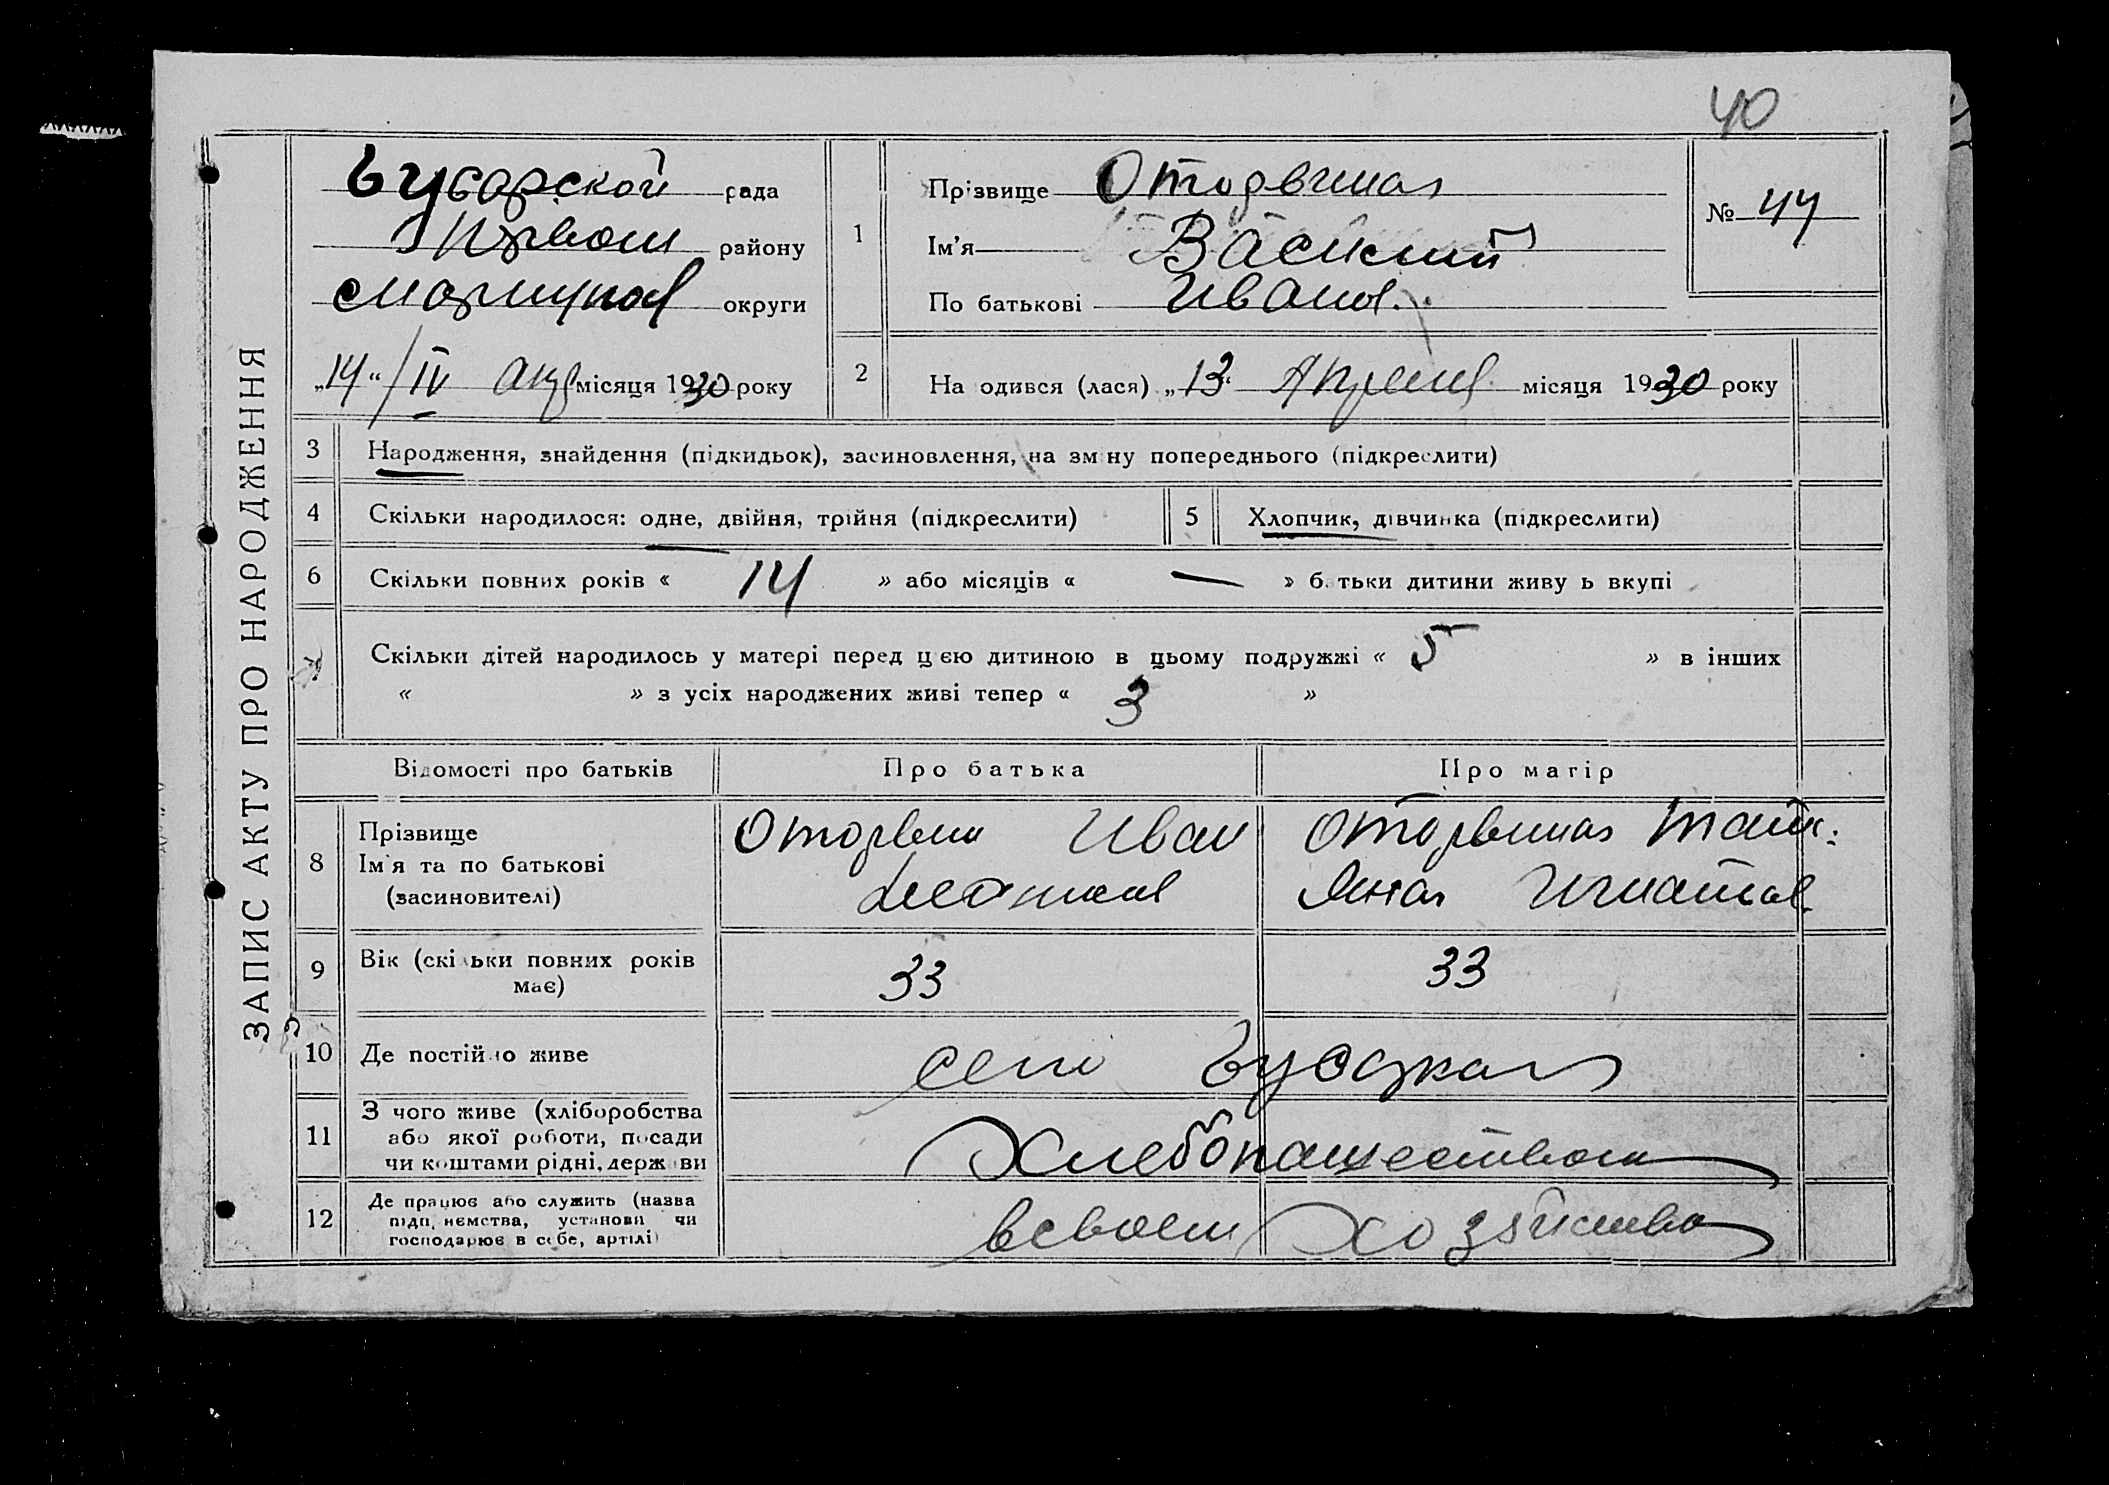 40
ЗАПИС АКТУ ПРО НАРОДЖЕННЯ
рада
району
округи
„14“/IV Апр місяця 1930 року
1 Прізвище
Ім'я Василий
По батькові Иванов.
№ 44
2 На одився (лася) „13“ Апреля місяця 1930 року
3 Народження, знайдення (підкидьок), засиновлення, на зміну попереднього (підкреслити)
4 Скільки народилося: одне, двійня, трійня (підкреслити) 5 Хлопчик, дівчинка (підкреслити)
6 Скільки повних років « 14 » або місяців « — » батьки дитини живу ь вкупі
7 Скільки дітей народилось у матері перед цією дитиною в цьому подружжі « 5 » в інших
« » з усіх народжених живі тепер « 3 »
Відомості про батьків Про батька Про матір
8 Прізвище
Ім'я та по батькові
(засиновителі)
Иван
Оторвина Тать:
яна Игнатов.
9 Вік (скільки повних років має) 33 33
10 Де постійно живе село
11 З чого живе (хліборобства
або якої роботи, посади
чи коштами рідні, держави
Хлебопашеством
12 Де працює або служить (назва
підп, немства, установи чи
господарює в себе, артілі)
в своем хозяйстве